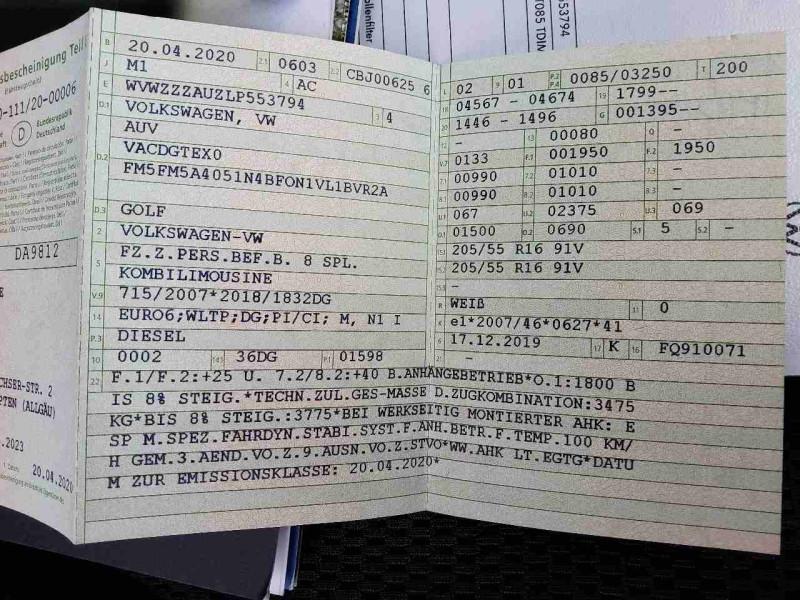 ollenfilter
T085 TDIN
53794
sbescheinigung Teil
-111/20-00006
D
Bundesrepublik
Deutschland
DA9812
CHSER-STR. 2
PTEN (ALLGÄU)
.2023
20.04.2020
B 20.04.2020 2.1 0603 2.2 CBJ00625 6
J M1 4 AC
E WVWZZZAUZLP553794 3 4
D.1 VOLKSWAGEN, VW
AUV
D.2 VACDGTEX0
FM5FM5A4051N4BFON1VL1BVR2A
D.3 GOLF
2 VOLKSWAGEN-VW
5 FZ.Z.PERS.BEF.B. 8 SPL.
KOMBILIMOUSINE
V.9 715/2007*2018/1832DG
14 EURO6;WLTP;DG;PI/CI; M, N1 I
P.3 DIESEL
10 0002 14.1 36DG P.1 01598
L 02 9 01 P.2 P.4 0085/03250 T 200
18 04567 - 04674 19 1799--
20 1446 - 1496 G 001395--
12 - 13 00080 Q -
V.7 0133 F.1 001950 F.2 1950
7.1 00990 7.2 01010 7.3 -
8.1 00990 8.2 01010 8.3 -
U.1 067 U.2 02375 U.3 069
O.1 01500 O.2 0690 S.1 5 S.2 -
15.1 205/55 R16 91V
15.2 205/55 R16 91V
15.3 -
R WEIß 11 0
K e1*2007/46*0627*41
6 17.12.2019 17 K 16 FQ910071
21 -
22 F.1/F.2:+25 U. 7.2/8.2:+40 B.ANHÄNGEBETRIEB*O.1:1800 B
IS 8% STEIG.*TECHN.ZUL.GES-MASSE D.ZUGKOMBINATION:3475
KG*BIS 8% STEIG.:3775*BEI WERKSEITIG MONTIERTER AHK: E
SP M.SPEZ.FAHRDYN.STABI.SYST.F.ANH.BETR.F.TEMP.100 KM/
H GEM.3.AEND.VO.Z.9.AUSN.VO.Z.STVO*WW.AHK LT.EGTG*DATU
M ZUR EMISSIONSKLASSE: 20.04.2020*